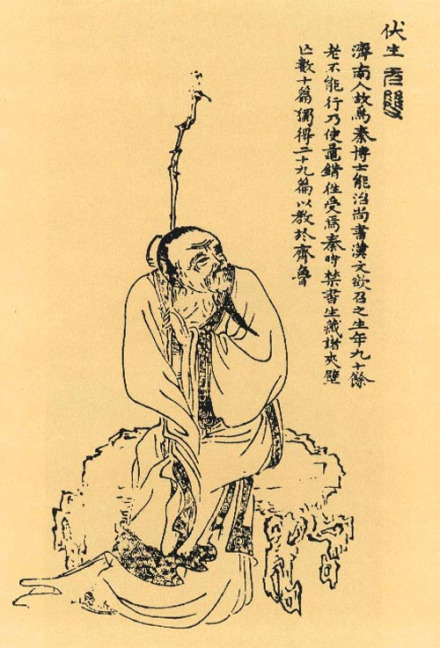 伏生
濟南人故爲秦博士能治尚書漢文欲召之生年九十餘
老不能行乃使鼂錯往受焉秦時禁書生藏諸夾壁
亡數十篇獨得二十九篇以教於齊魯